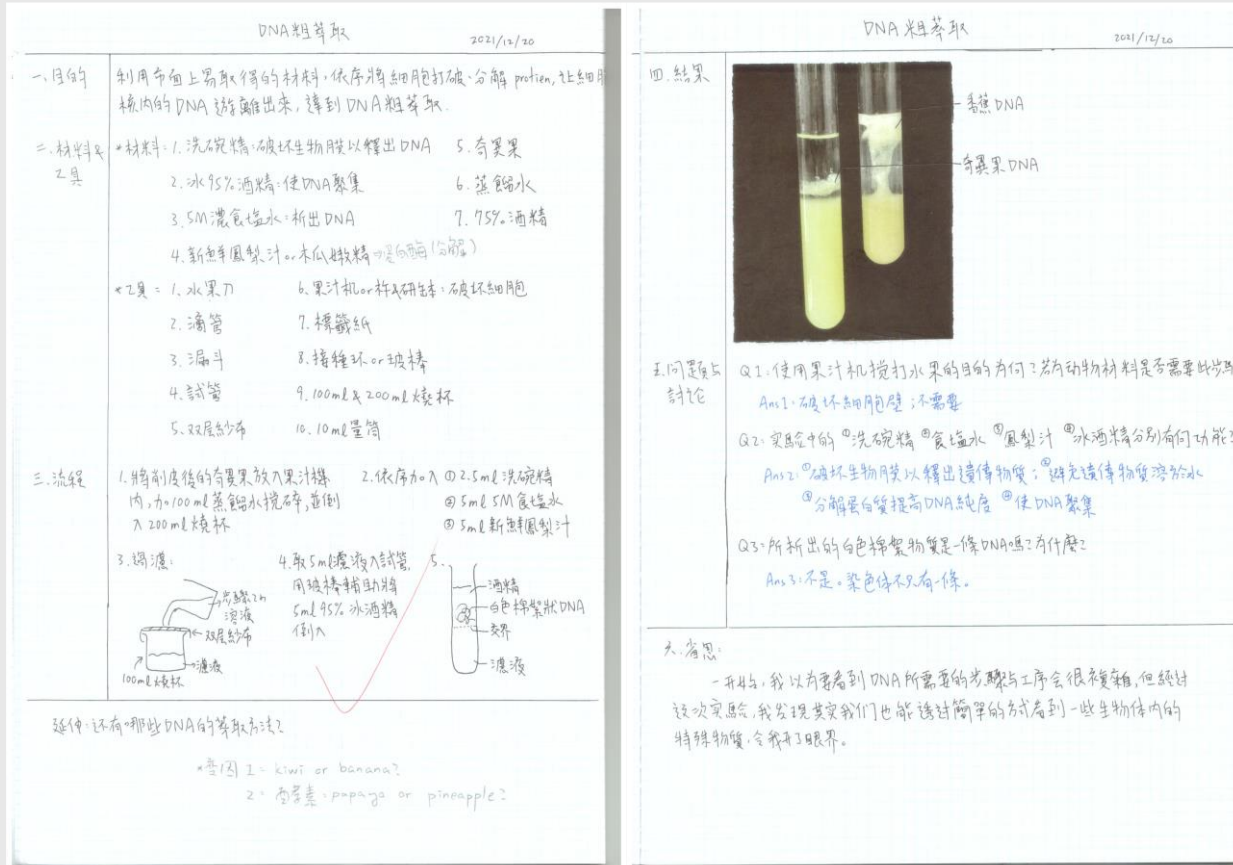 DNA粗萃取
2021/12/20
一.目的
利用市面上易取得的材料,依序將細胞打破、分解 protien,让細胞
核内的DNA 游離出來,達到DNA粗萃取.
二.材料&
工具
*材料:1.洗碗精:破坏生物膜以釋出DNA
5.奇異果
2.冰95%酒精:使DNA聚集
6.蒸餾水
3.5M濃食塩水:析出DNA
7.75%酒精
4.新鮮鳳梨汁or木瓜嫩精→蛋白酶(分解)
*工具:1.水果刀
6.果汁机or杵&研缽:破坏細胞
2.滴管
7.標籤紙
3.漏斗
8.接種环or玻棒
4.試管
9.100ml & 200ml燒杯
5.双层紗布
10.10ml量筒
三.流程
1.將削皮後的奇異果放入果汁機
内,加100ml蒸餾水搅碎,並倒
入200ml燒杯
2.依序加入 ①2.5ml洗碗精
②5ml 5M食塩水
③5ml新鮮鳳梨汁
3.過濾:
步驟2的
溶液
双层紗布
濾液
100ml燒杯
4.取5ml濾液入試管,
用玻棒輔助將
5ml 95%冰酒精
倒入
5.
酒精
白色棉絮狀DNA
交界
濾液
延伸:还有哪些DNA的萃取方法?
1= kiwi or banana?
2= papaya or pineapple?
DNA粗萃取
2021/12/20
四.結果
香蕉DNA
奇異果DNA
五.问題与
討论
Q1:使用果汁机搅打水果的目的為何?若為动物材料是否需要此步驟
Ans1:破坏細胞壁;不需要
Q2:实驗中的 ①洗碗精 ②食塩水 ③鳳梨汁 ④冰酒精分別有何功能?
Ans2:①破坏生物膜以釋出遺傳物質;②避免遺傳物質溶於水
③分解蛋白質提高DNA純度 ④使DNA聚集
Q3:所析出的白色棉絮物質是一條DNA嗎?为什麼?
Ans3:不是。染色体不只有一條。
六.省思:
一开始,我以为要看到DNA所需要的步驟与工序会很複雜,但经过
这次实驗,我发现其实我们也能透过簡單的方式看到一些生物体内的
特殊物質,令我开了眼界。